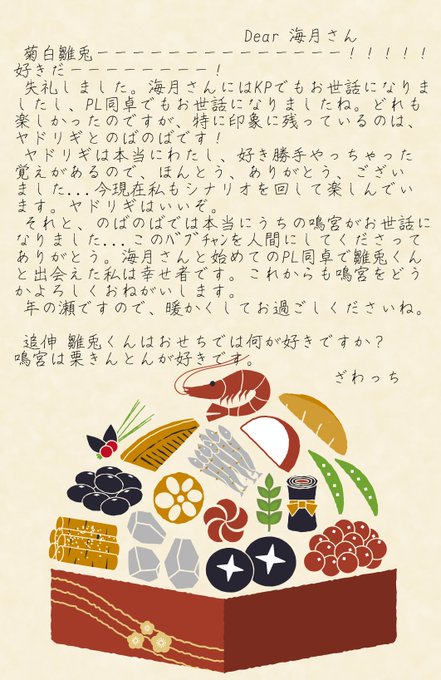 Dear 海月さん
菊白雛兎ーーーーーーーーーーーーーーー！！！！！
好きだーーーーーーーー！
失礼しました。海月さんにはKPでもお世話になりま
したし、PL同卓でもお世話になりましたね。どれも
楽しかったのですが、特に印象に残っているのは、
ヤドリギとのばのばです！
ヤドリギは本当にわたし、好き勝手やっちゃった
覚えがあるので、ほんとう、ありがとう、ござい
ました...今現在私もシナリオを回して楽しんでい
ます。ヤドリギはいいぞ。
それと、のばのばでは本当にうちの鳴宮がお世話に
なりました...このﾊﾞﾌﾞﾁｬﾝを人間にしてくださって
ありがとう。海月さんと始めてのPL同卓で雛兎くん
と出会えた私は幸せ者です。これからも鳴宮をどう
かよろしくおねがいします。
年の瀬ですので、暖かくしてお過ごしくださいね。
追伸 雛兎くんはおせちでは何が好きですか？
鳴宮は栗きんとんが好きです。
ざわっち